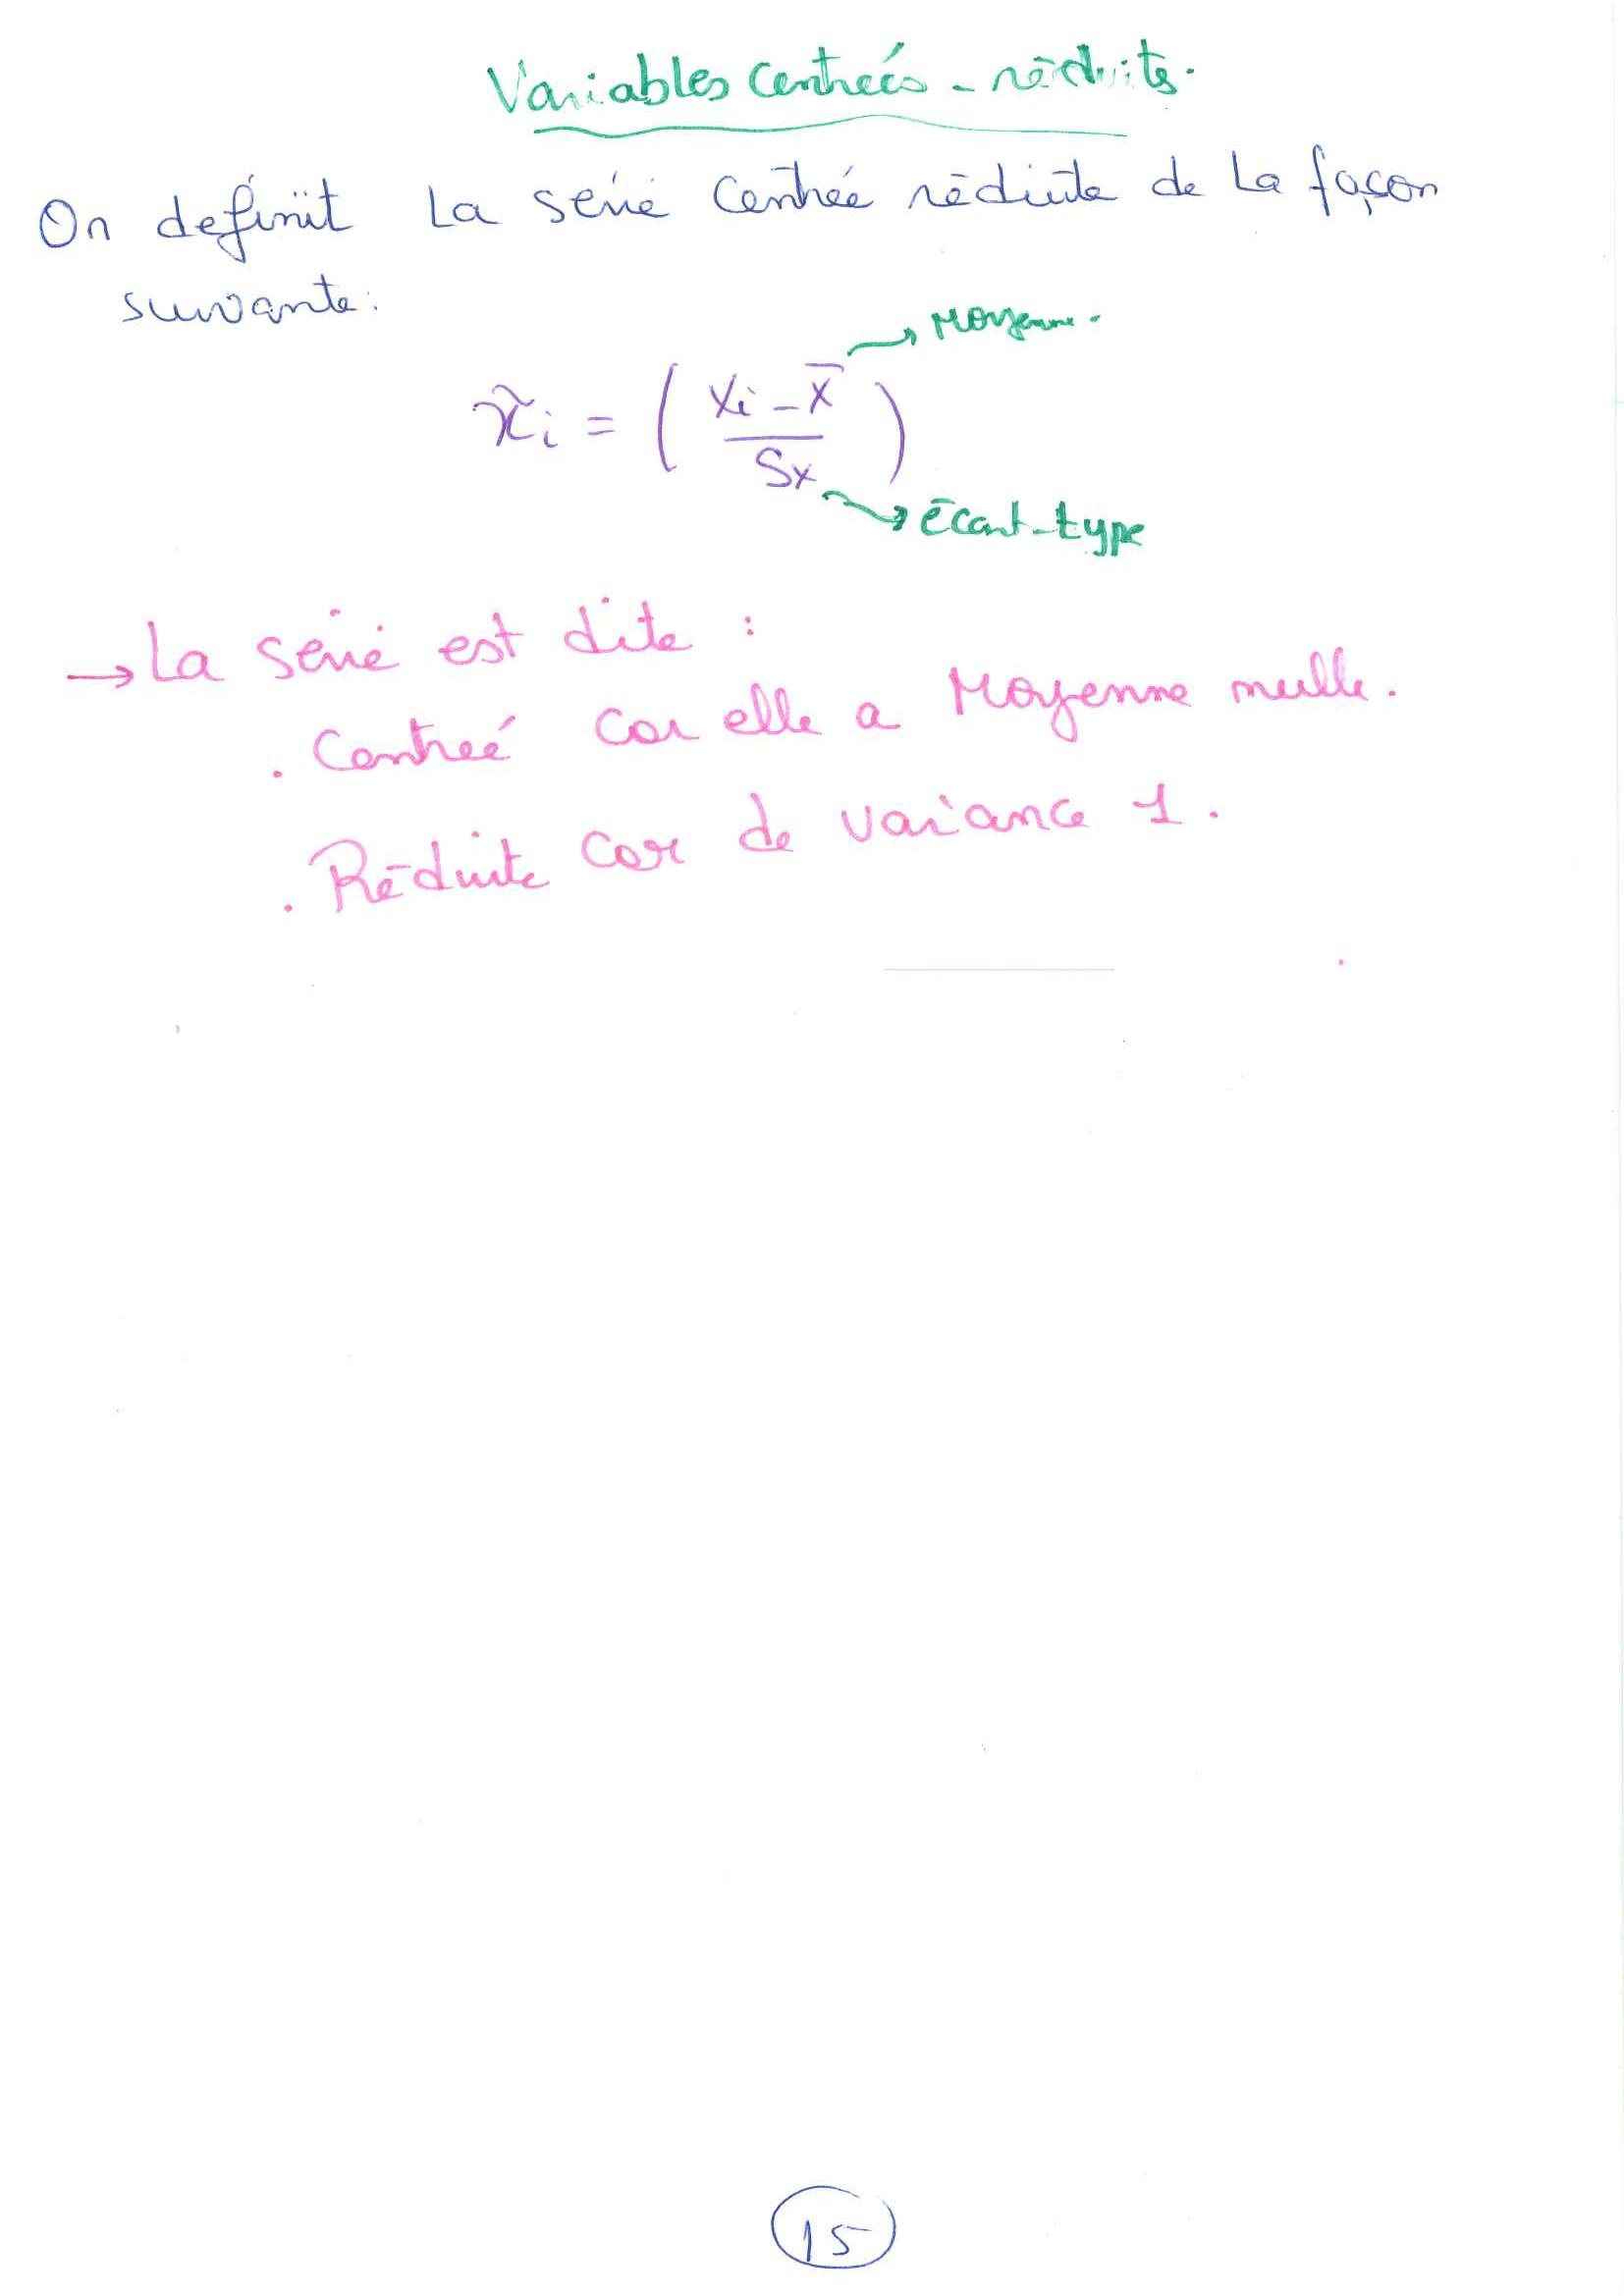 Variables Centrées - réduits.
On définit la série Centrée réduite de la façon
suivante:
Moyenne.
x̃i = ( (Xi - X̄) / Sx )
écart-type
→ La série est dite :
. Centreé car elle a Moyenne nulle.
. Réduite car de variance 1.
15